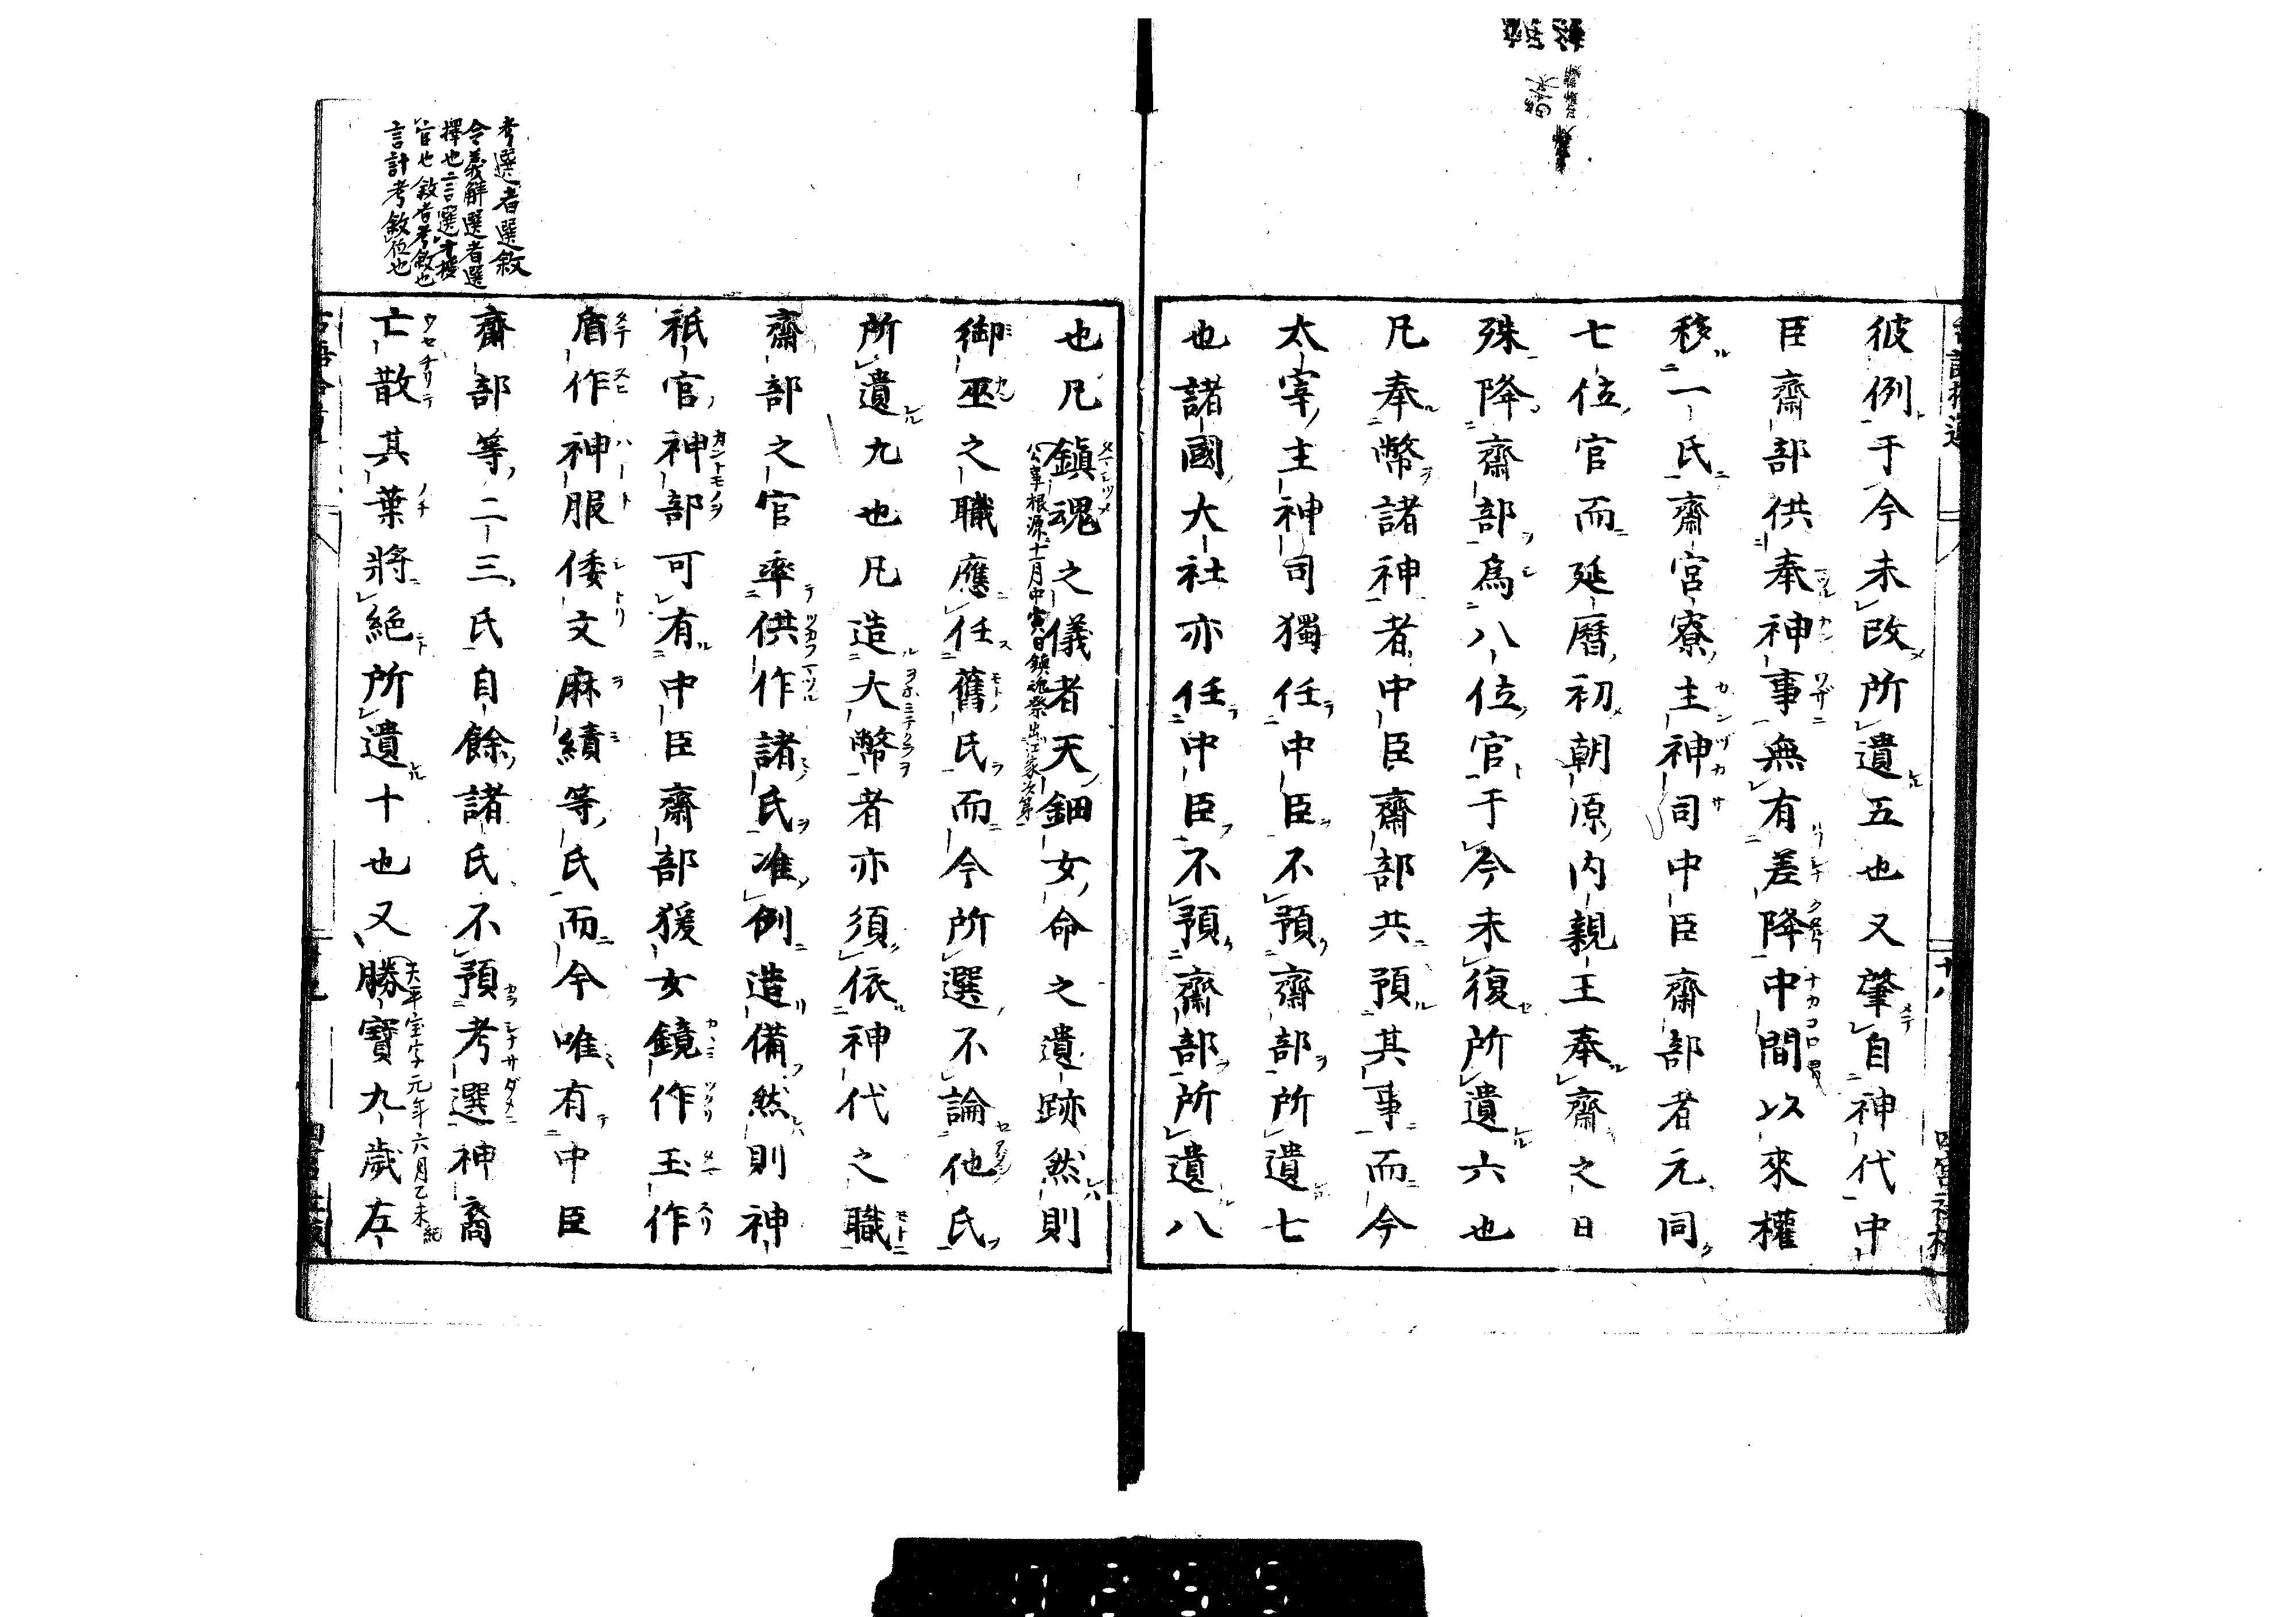 彼例于今未改所遺五也又肇自神代中
臣齋部供奉神事無有差降中間以來權
移一氏齋宮寮主神司中臣齋部者元同
七位官而延暦初朝原内親王奉齋之日
殊降齋部爲八位官于今未復所遺六也
凡奉幣諸神者中臣齋部共預其事而今
太宰主神司獨任中臣不預齋部所遺七
也諸國大社亦任中臣不預齋部所遺八
也凡鎮魂之儀者天鈿女命之遺跡然則
公事根源十一月中寅日鎮魂祭出江家次第
御巫之職應任舊氏而今所選不論他氏
所遺九也凡造大幣者亦須依神代之職
齋部之官率供作諸氏准例造備然則神
祇官神部可有中臣齋部猨女鏡作玉作
盾作神服倭文麻績等氏而今唯有中臣
齋部等二三氏自餘諸氏不預考選神裔
亡散其葉將絶所遺十也又勝寶九歳左
天平宝字元年六月乙未紀
考選者選敘
令義解選者選
擇也言選才授
官也敘者考敘也
言計考敘位也